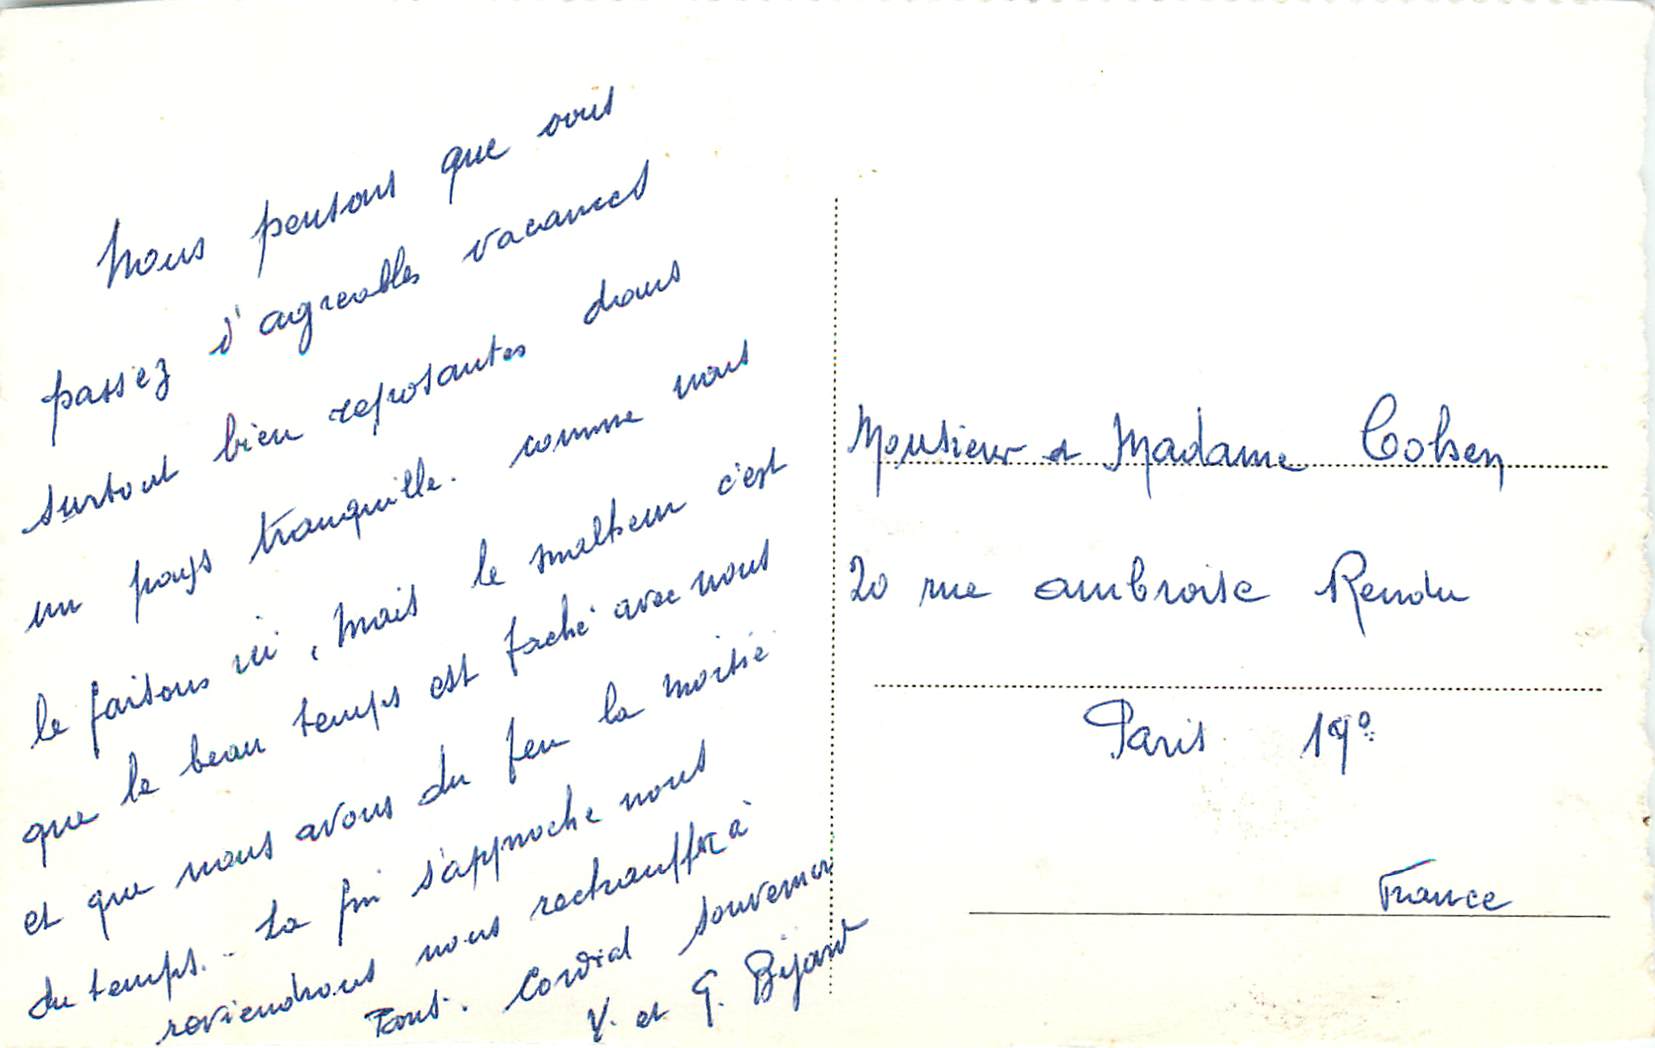 Nous pensons que vous
passez d'agreables vacances
surtout bien reposantes dans
un pays tranquille. comme nous
le faisons ici, mais le malheur c'est
que le beau temps est faché avec nous
et que nous avons du feu la moitié
du temps. - La fin s'approche nous
reviendrons nous rechauffer à
Cordial souvenir
V. et G. Bijard
Monsieur et Madame Cohen
20 rue ambroise Rendu
Paris 19e
France